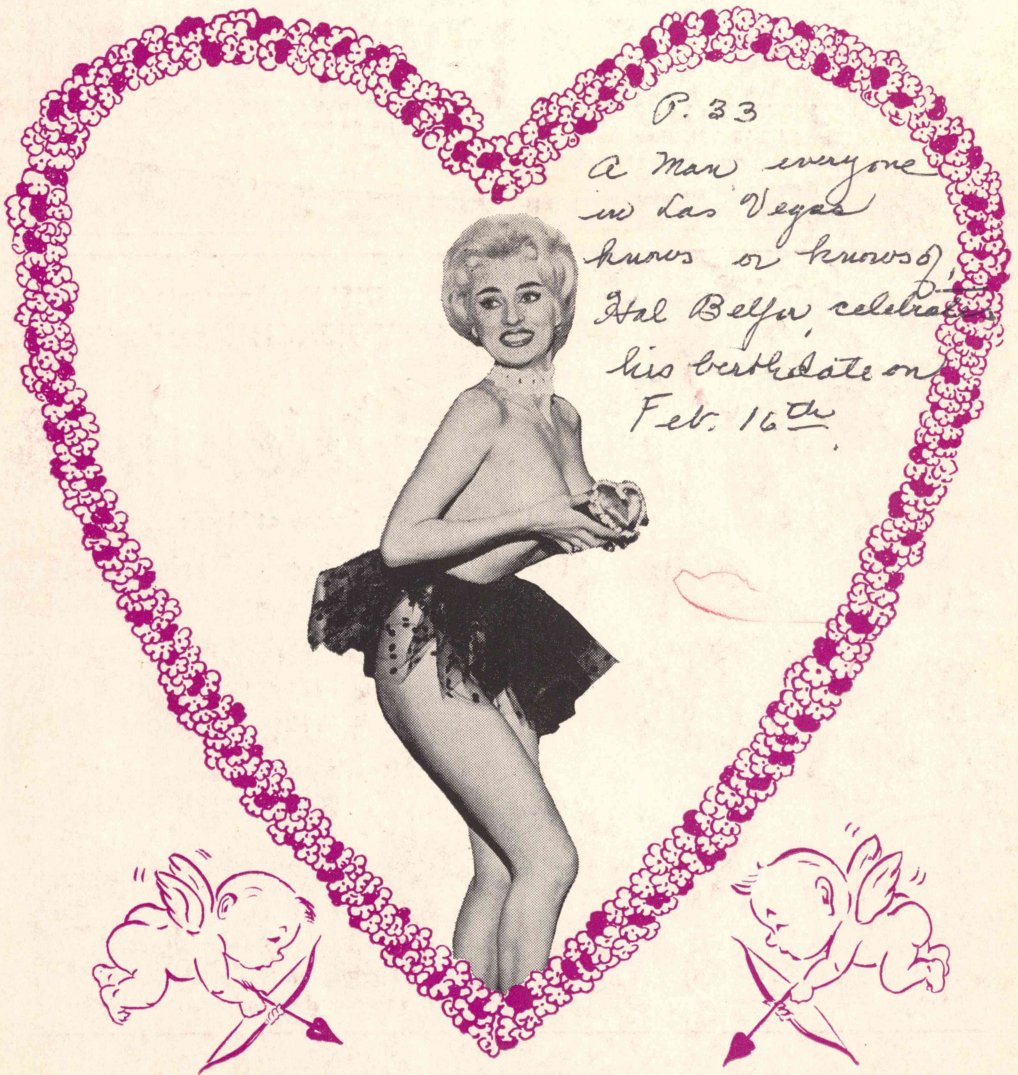 P. 33
A Man everyone
in Las Vegas
knows or knows of,
Hal Belfer celebrates
his berthdate on
Feb. 16th